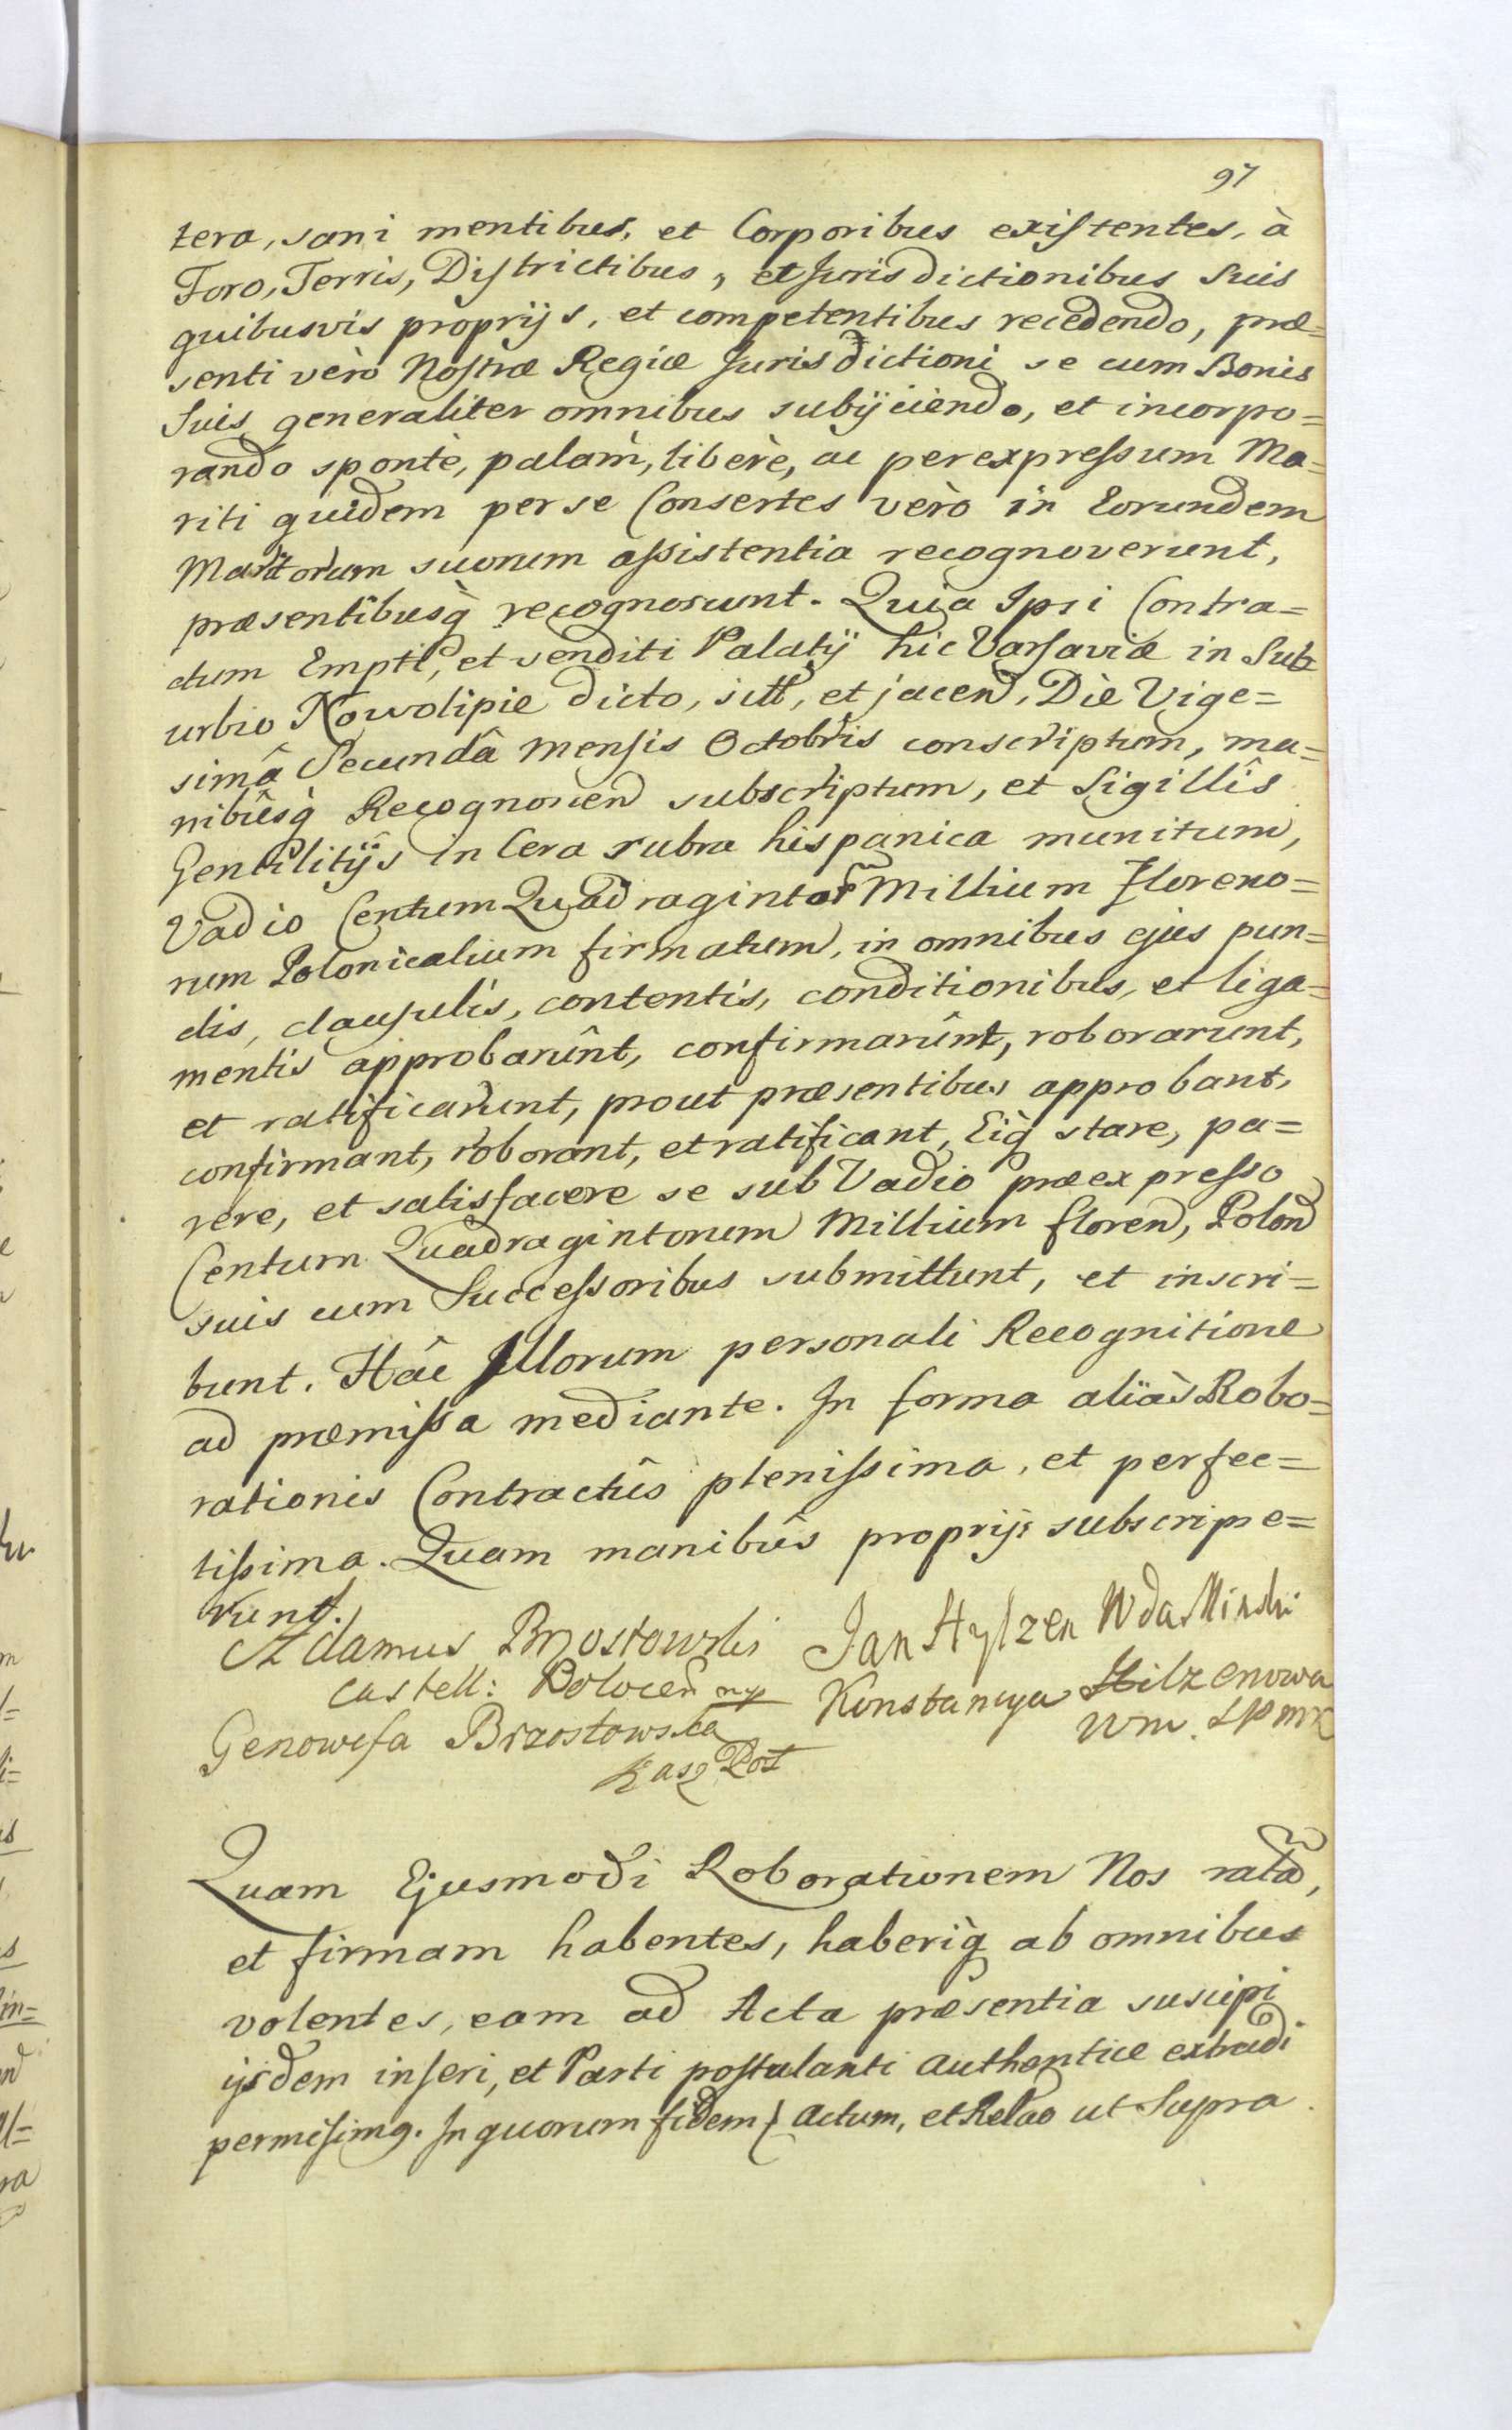 97
tera, sani mentibus, et Corporibus existentes, à
Foro, Terris, Districtibus, et Jurisdictionibus Suis
quibusvis proprijs, et competentibus recedendo, præ=
senti verò Nostræ Regiæ Jurisdictioni se cum Bonis
Suis generaliter omnibus subijciendo, et incorpo=
rando spontè, palàm, liberè, ac per expressum Ma=
riti quidem per se Consertes verò in Eorundem
Maritorum suorum assistentia recognoverunt,
præsentibusq̀ recognoscunt. Quia Ipsi Contra=
ctum Empti, et venditi Palatij hic Varsaviæ in Sub
urbio Nowolipie dicto, sitt, et jacen, Die Vige=
simâ Secundâ Mensis Octobris conscriptum, ma=
nibûsq̀ Recognoscen subscriptum, et Sigillîs
Gentilitijs in Cera rubra hispanica munitum,
Vadio Centum Quadraginta Millium Floreno=
rum Polonicalium firmatum, in omnibus ejus pun=
ctis, clausulis, contentis, conditionibus, et liga=
mentis approbarûnt, confirmarûnt, roborarunt,
et ratificarunt, prout præsentibus approbant,
confirmant, roborant, et ratificant, Eiq̀ stare, pa=
rere, et satisfacere se sub Vadio præexpresso
Centum Quadragintorum Millium floren, Polon
suis cum Successoribus submittunt, et inscri=
bunt. Hâc Illorum personali Recognitione
ad præmissa mediante. In forma aliàs Robo=
rationis Contractûs plenissima, et perfec=
tissima. Quam manibûs proprijs subscripse=
runt.
Adamus Brzostowski Jan Hylzen Wda Minski
Castell: Polocen mp Konstancya Hilzenowa
Genowefa Brzostowska Wm. LPmx
Kasz Pot
Quam Ejusmodi Roborationem Nos ratã,
et firmam habentes, haberiq̀ ab omnibus
volentes, eam ad Acta præsentia suscipi
ijsdem inseri, et Parti postulanti authentice extradi
permisimꝯ. In quorum fidem Actum, et Relao ut Supra.